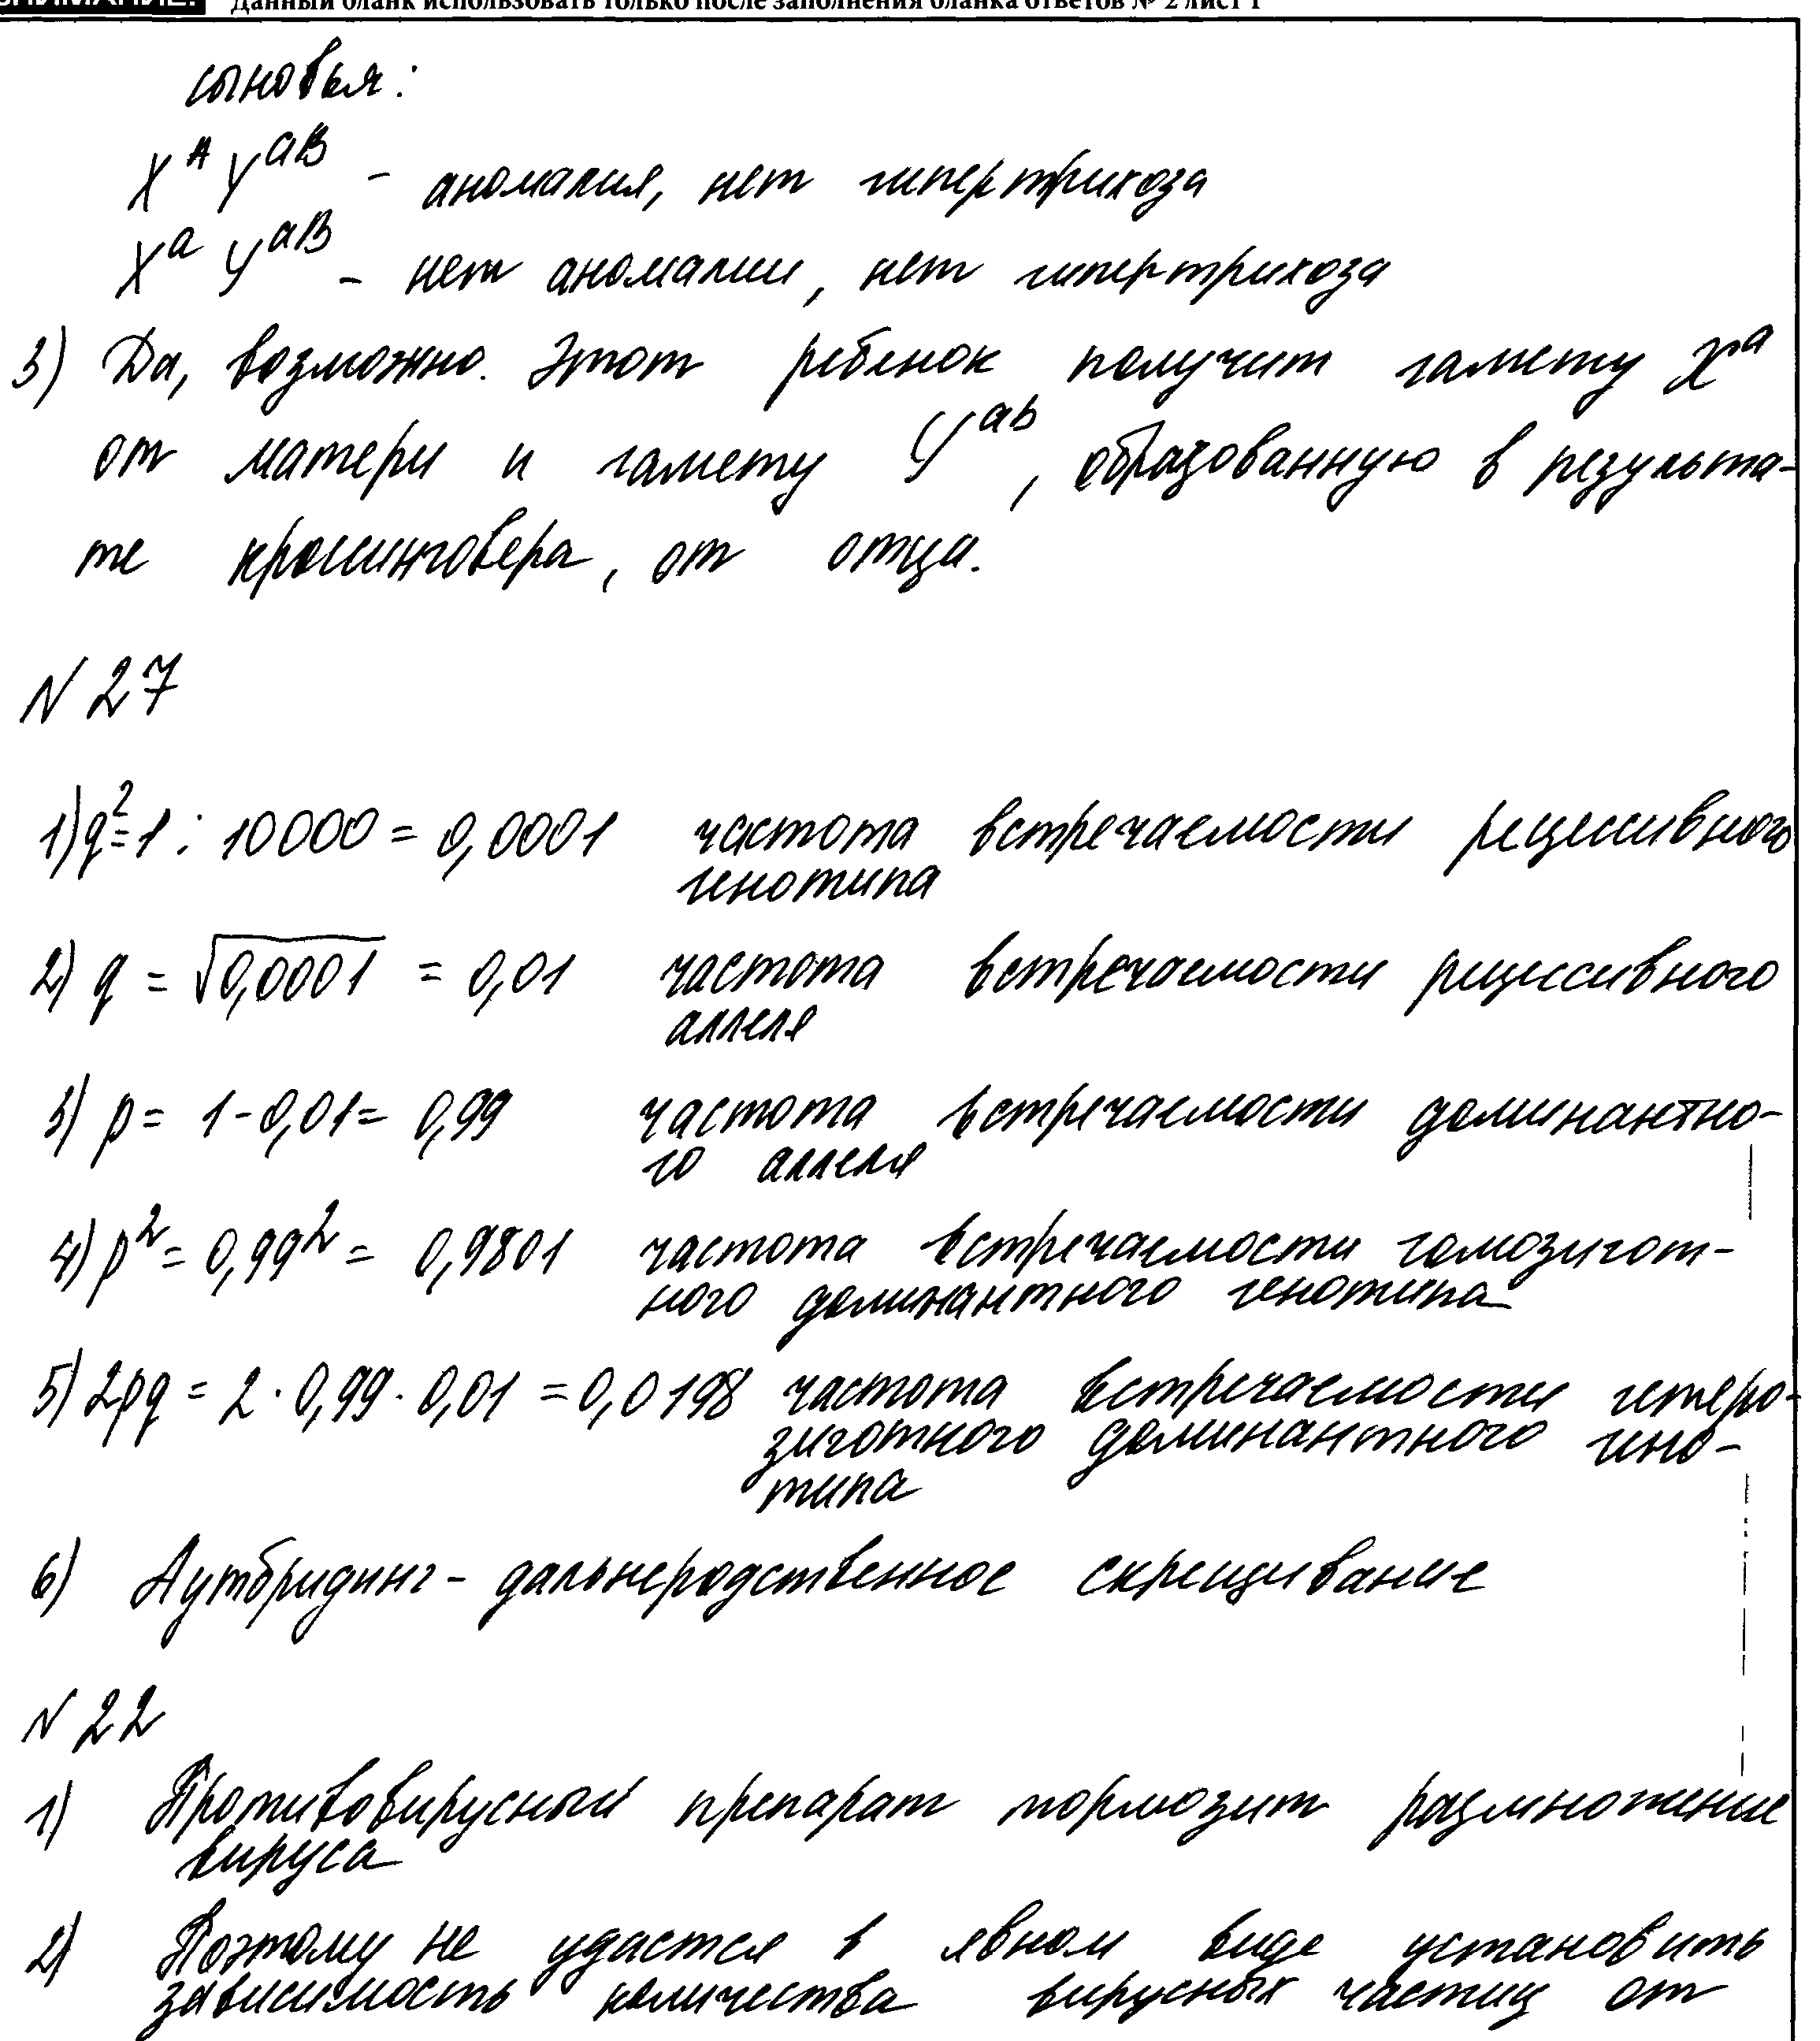 ВНИМАНИЕ! Данный бланк использовать только после заполнения бланка ответов № 2 лист 1
сыновья:
X^A Y^aB - аномалия, нет гипертрихоза
X^a Y^aB - нет аномалии, нет гипертрихоза
3) Да, возможно. Этот ребенок получит гамету X^a
от матери и гамету Y^ab, образованную в результа-
те кроссинговера, от отца.
N 27
1) q^2 = 1 : 10000 = 0,0001 частота встречаемости рецессивного
генотипа
2) q = √0,0001 = 0,01 частота встречаемости рецессивного
аллеля
3) p = 1 - 0,01 = 0,99 частота встречаемости доминантно-
го аллеля
4) p^2 = 0,99^2 = 0,9801 частота встречаемости гомозигот-
ного доминантного генотипа
5) 2pq = 2 · 0,99 · 0,01 = 0,0198 частота встречаемости гетеро-
зиготного доминантного гено-
типа
6) Аутбридинг - дальнеродственное скрещивание
N 22
1) Противовирусный препарат тормозит размножение
вируса
2) Поэтому не удастся в явном виде установить
зависимость количества вирусных частиц от